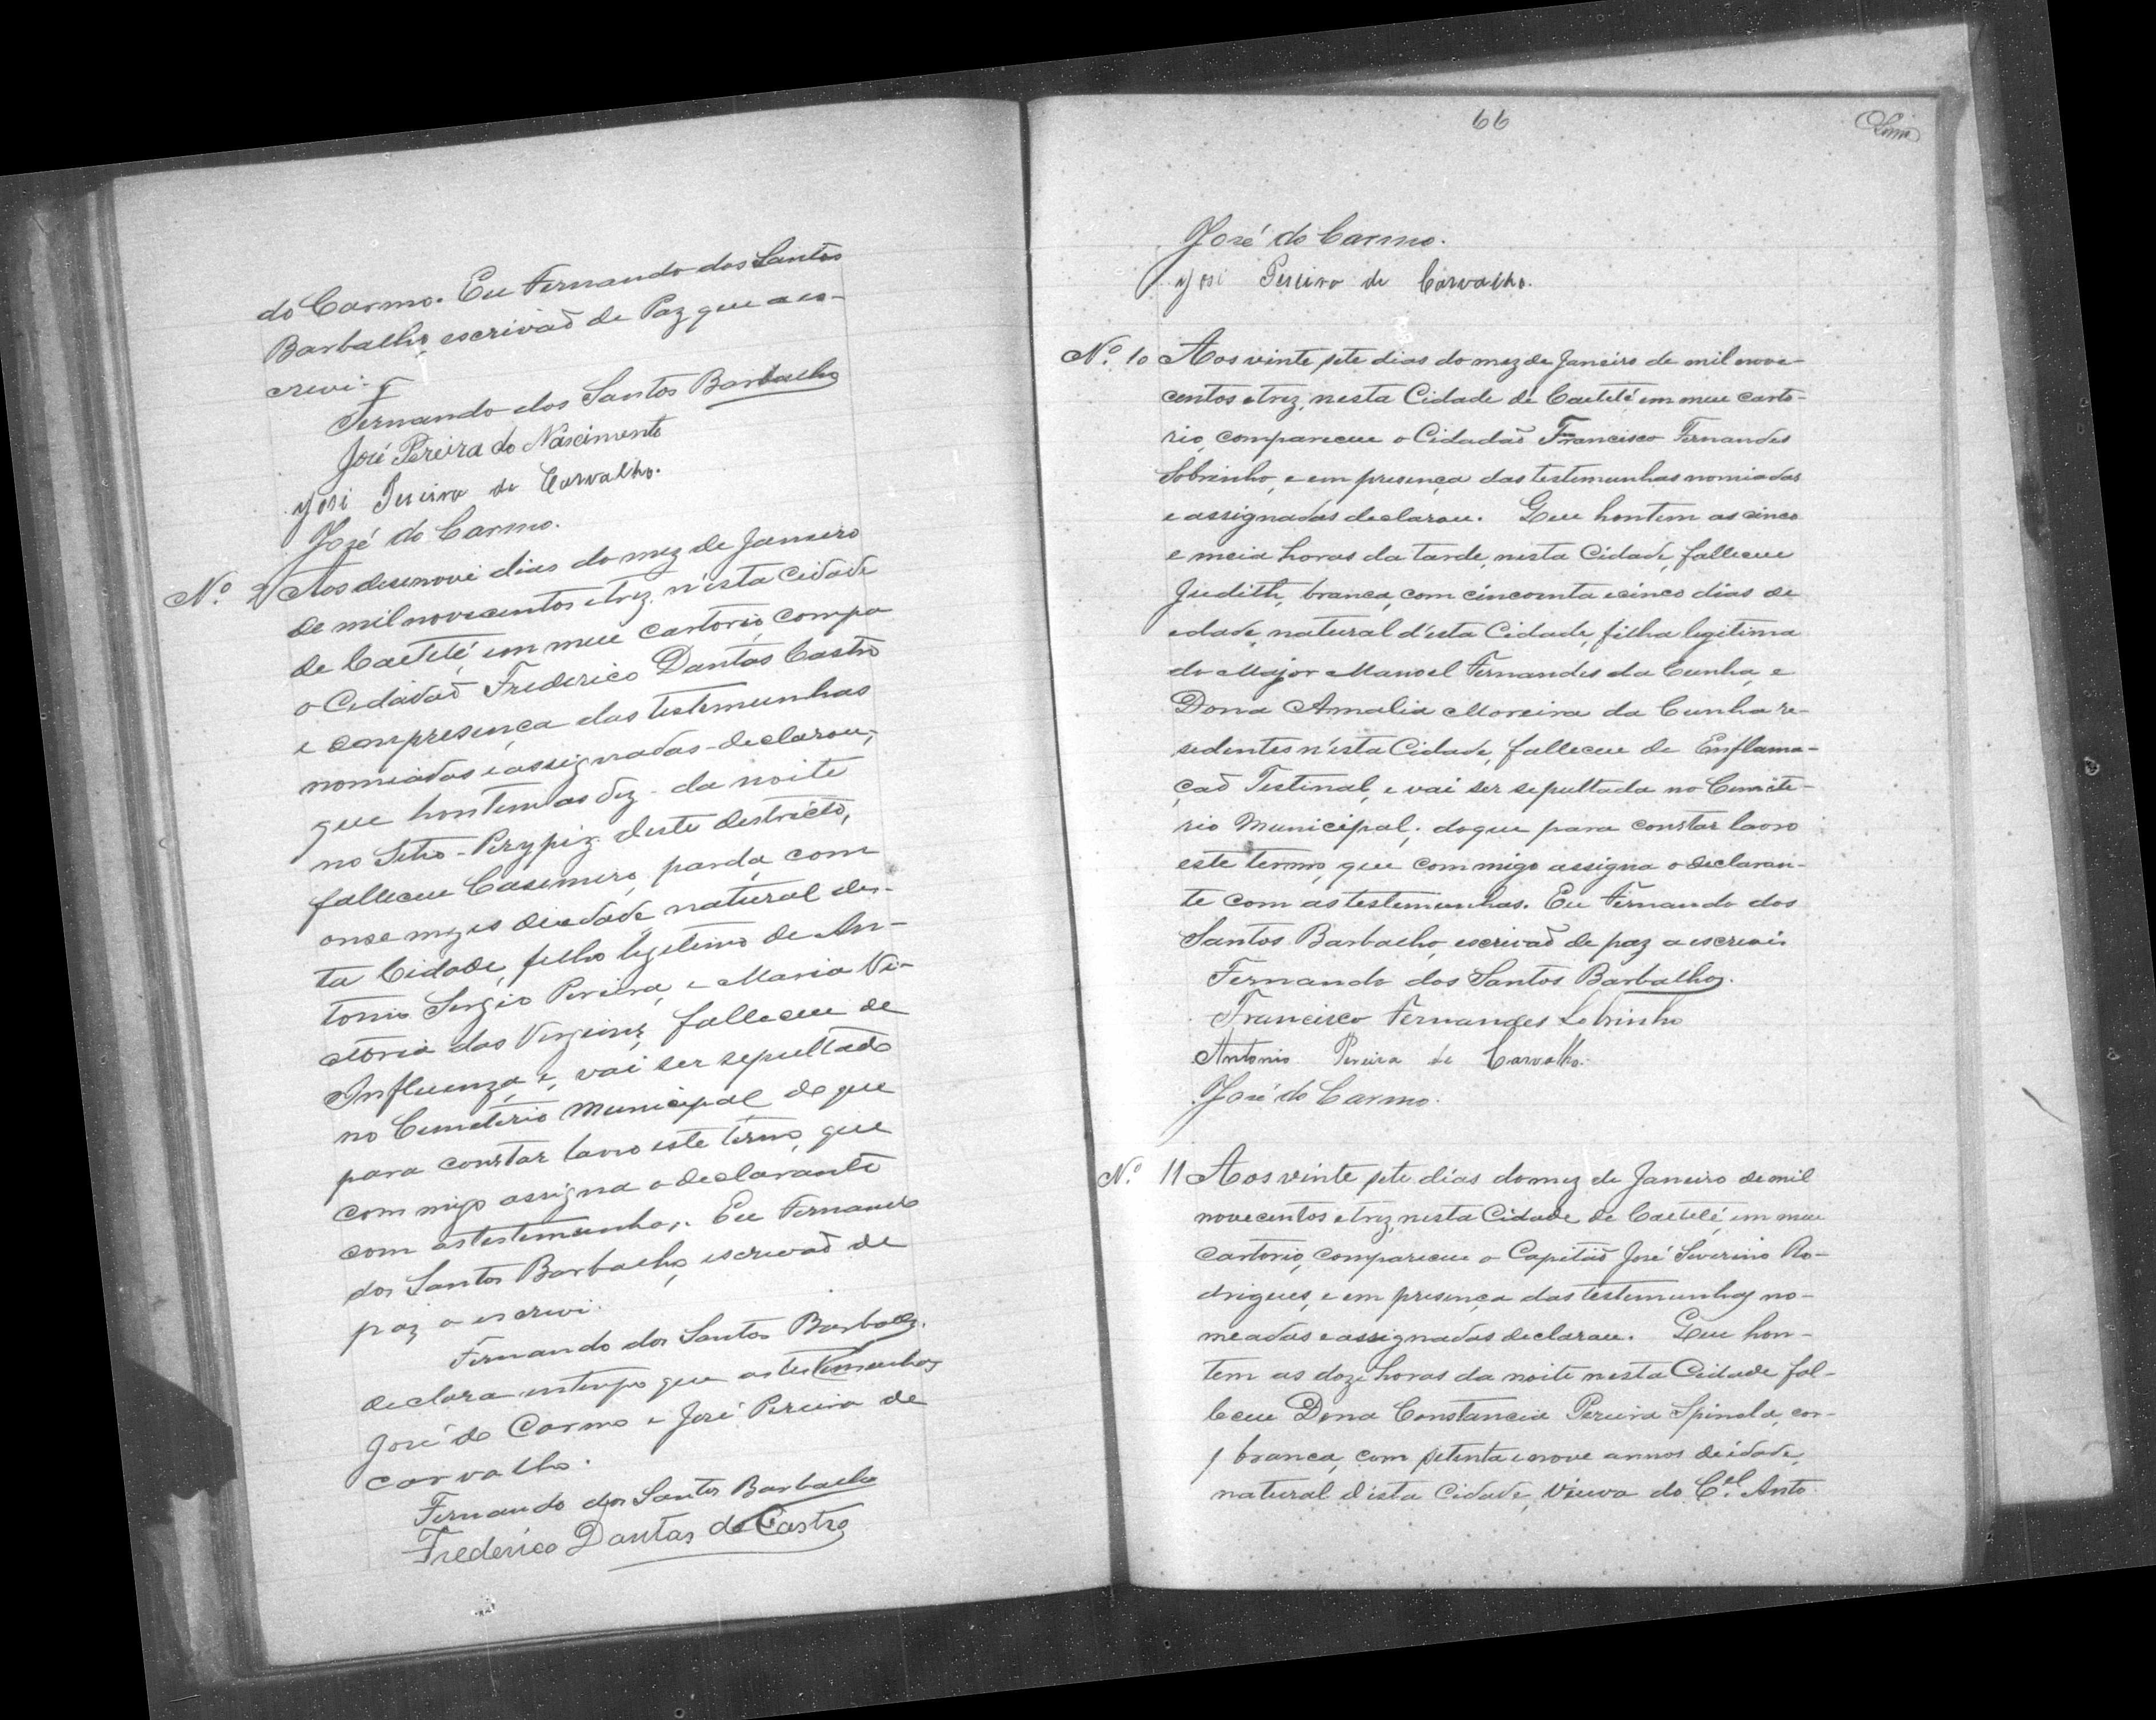 do Carmo. Eu Fernando dos Santos
Barbalho, escrivaõ de Paz que a es-
crevi.
Fernando dos Santos Barbalho
José Pereira do Nascimento
José Pereira de Carvalho.
José do Carmo.
Nº 9 Aos desenove dias do mez de Janeiro
de mil novecentos e trez, n'esta Cidade
de Caetété, em meu cartorio, compa
o Cidadaõ Frederico Dantas Castro
e em presença das testemunhas
nomiadas e assignadas declarou,
que hontem as dez da noite
no Sitio Perypiry deste destricto,
falleceu Casemiro, pardo, com
onse mezes de edade natural des-
ta Cidade, filho legitimo de An-
tonio Sergio Pereira, e Maria Vi-
ctoria das Virgens, falleceu de
Influenza, e, vai ser sepultado
no Cemeterio Municipal do que
para constar lavro este termo, que
commigo assigna o declarante
com as testemunhas. Eu Fernando
dos Santos Barbalho, escrivaõ de
paz a escrevi.
Fernando dos Santos Barbalho.
declara em tempo que as testemunhas
José do Carmo e José Pereira de
Carvalho.
Fernando dos Santos Barbalho
Frederico Dantas de Castro
66
José do Carmo.
José Pereira de Carvalho.
Nº 10 Aos vinte sete dias do mez de Janeiro de mil nove-
centos e trez, nesta Cidade de Caetété em meu carto-
rio, compareceu o Cidadaõ Francisco Fernandes
Sobrinho, e em presença das testemunhas nomiadas
e assignadas declarou. Que hontem as cinco
e meia horas da tarde, nesta Cidade, falleceu
Judith, branca, com cincoenta e cinco dias de
edade, natural d'esta Cidade, filha legitima
do Major Manoel Fernandes da Cunha, e
Dona Amalia Moreira da Cunha re-
sedentes n'esta Cidade, falleceu de Enflama-
çaõ Testinal, e vai ser sepultada no Cemite-
rio Municipal; do que para constar lavro
este termo, que commigo assigna o declaran-
te com as testemunhas. Eu Fernando dos
Santos Barbalho, escrivaõ de paz a escrevi.
Fernando dos Santos Barbalho.
Francisco Fernandes Sobrinho
Antonio Pereira de Carvalho.
José do Carmo.
Nº 11 Aos vinte sete dias do mez de Janeiro de mil
novecentos e trez, nesta Cidade de Caetété, em meu
cartorio, compareceu o Capitaõ José Severino Ro-
drigues, e em presença das testemunhas no-
meadas e assignadas declarou. Que hon-
tem as doze horas da noite nesta Cidade fal-
leceu Dona Constancia Pereira Spinola, cor-
branca, com setenta e nove annos de idade,
natural d'esta Cidade, Viuva do C.el Anto